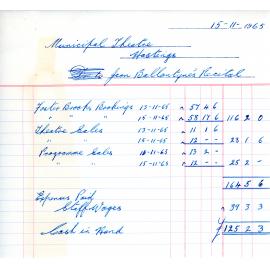 15-11-1965
Municipal Theatre
Hastings
from Ballantynes Recital
Foster Brooks Bookings 13-11-65 " 57 4 6
" " " 15-11-65 " 58 17 6 116 2 0
Theatre Sales 13-11-65 " 11 1 6
" " 15-11-65 " 12 - - 23 1 6
Programme Sales 13-11-65 " 13 2 -
" " 15-11-65 " 12 - - 25 2 -
164 5 6
Expenses Paid
Staff Wages " 39 3 3
Cash in Hand £125 2 3